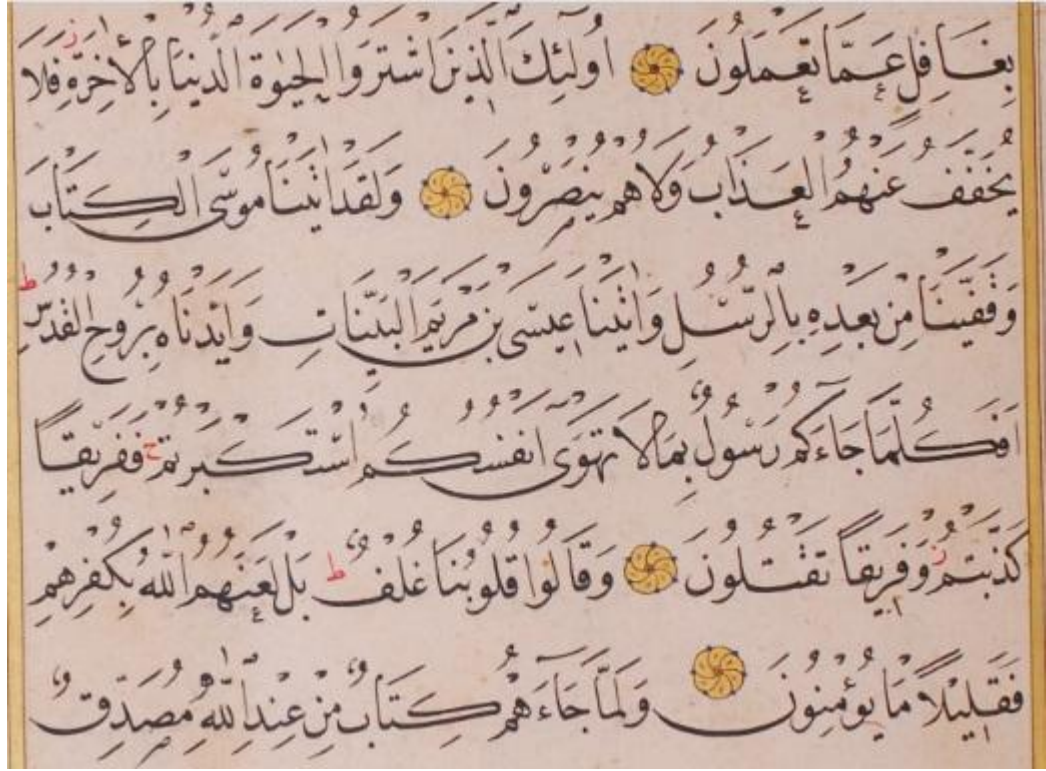 بِغَافِلٍ عَمَّا تَعْمَلُونَ اُولٰٓئِكَ الَّذِينَ اشْتَرَوُا الْحَيٰوةَ الدُّنْيَا بِالْاٰخِرَةِ فَلَا
يُخَفَّفُ عَنْهُمُ الْعَذَابُ وَلَا هُمْ يُنْصَرُونَ وَلَقَدْ اٰتَيْنَا مُوسَى الْكِتَابَ
وَقَفَّيْنَا مِنْ بَعْدِهِ بِالرُّسُلِ وَاٰتَيْنَا عِيسَى بْنَ مَرْيَمَ الْبَيِّنَاتِ وَاَيَّدْنَاهُ بِرُوحِ الْقُدُسِ ط
اَفَكُلَّمَا جَاءَكُمْ رَسُولٌ بِمَا لَا تَهْوٰٓى اَنْفُسُكُمُ اسْتَكْبَرْتُمْ ج فَفَرِيقًا
كَذَّبْتُمْ ز وَفَرِيقًا تَقْتُلُونَ وَقَالُوا قُلُوبُنَا غُلْفٌ ط بَلْ لَعَنَهُمُ اللّٰهُ بِكُفْرِهِمْ
فَقَلِيلًا مَا يُؤْمِنُونَ وَلَمَّا جَاءَهُمْ كِتَابٌ مِنْ عِنْدِ اللّٰهِ مُصَدِّقٌ